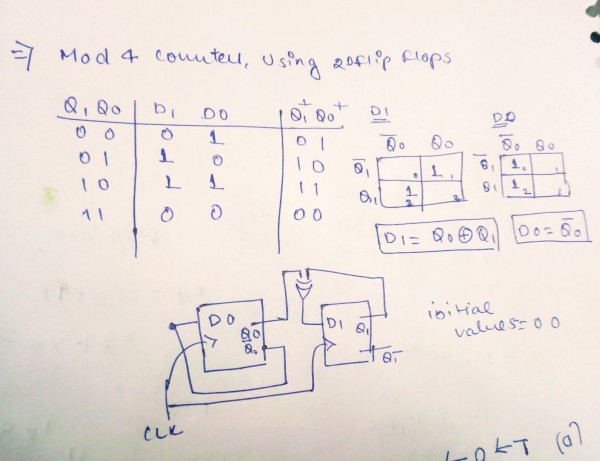 ⇒ Mod 4 counter, using 2 D flip flops
Q1 Q0 | D1 D0 | Q1+ Q0+
0 0 | 0 1 | 0 1
0 1 | 1 0 | 1 0
1 0 | 1 1 | 1 1
1 1 | 0 0 | 0 0
D1
Q̅0 Q0
Q̅1 0 1 1
Q1 1 2 3
D1 = Q0 ⊕ Q1
D0
Q̅0 Q0
Q̅1 1 0 1
Q1 1 2 3
D0 = Q̅0
D0
Q0
Q̅0
D1
Q1
Q̅1
CLK
initial
values = 0 0
(a)